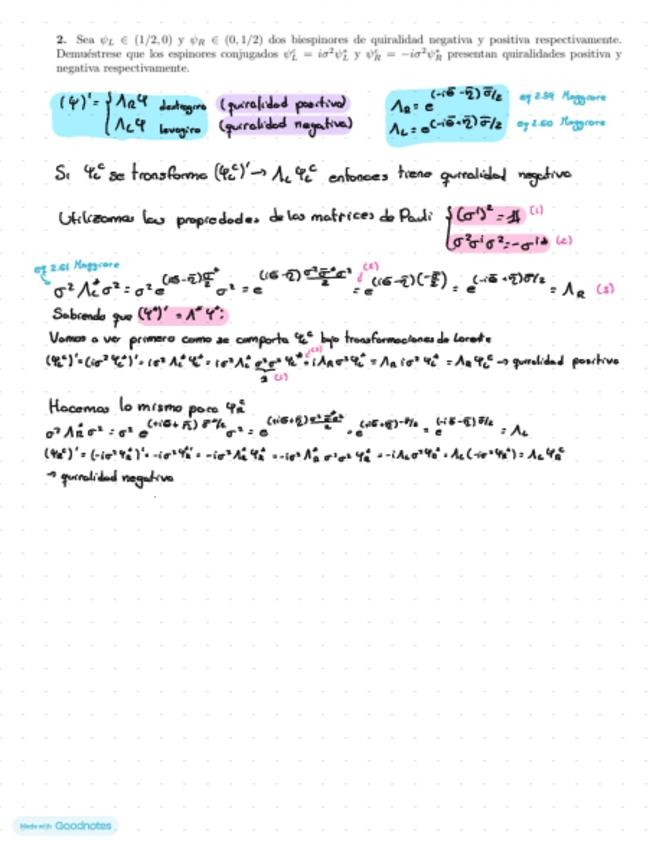 2. Sea ψ_L ∈ (1/2, 0) y ψ_R ∈ (0, 1/2) dos biespinores de quiralidad negativa y positiva respectivamente.
Demuéstrese que los espinores conjugados ψ_L^c = iσ²ψ_L^* y ψ_R^c = −iσ²ψ_R^* presentan quiralidades positiva y
negativa respectivamente.
(ψ)' = { Λ_R ψ dextrogiro (quiralidad positiva)
Λ_L ψ levogiro (quiralidad negativa)
Λ_R = e^(-iθ̄ - η̄)σ̄/2 eq 2.59 Maggiore
Λ_L = e^(-iθ̄ + η̄)σ̄/2 eq 2.60 Maggiore
Si ψ_L^c se transforma (ψ_L^c)' → Λ_L ψ_L^c entonces tiene quiralidad negativa
Utilizamos las propiedades de las matrices de Pauli { (σ^i)² = 1 (1)
σ²σ^iσ² = -σ^i* (2)
eq 2.61 Maggiore
σ² Λ_L^* σ² = σ² e σ² = e = e = e = Λ_R (3)
Sabiendo que (ψ^*)' = Λ^* ψ^*:
Vamos a ver primero como se comporta ψ_L^c bajo transformaciones de Lorentz
(ψ_L^c)' = (iσ² ψ_L^*)' = iσ² Λ_L^* ψ_L^* = iσ² Λ_L^* σ²σ² ψ_L^* = iΛ_R σ² ψ_L^* = Λ_R iσ² ψ_L^* = Λ_R ψ_L^c → quiralidad positiva
Hacemos lo mismo para ψ_R^c
σ² Λ_R^* σ² = σ² e σ² = e = e = e = Λ_L
(ψ_R^c)' = (-iσ² ψ_R^*)' = -iσ² Λ_R^* ψ_R^* = -iσ² Λ_R^* σ²σ² ψ_R^* = -iΛ_L σ² ψ_R^* = Λ_L (-iσ² ψ_R^*) = Λ_L ψ_R^c
→ quiralidad negativa
Made with Goodnotes